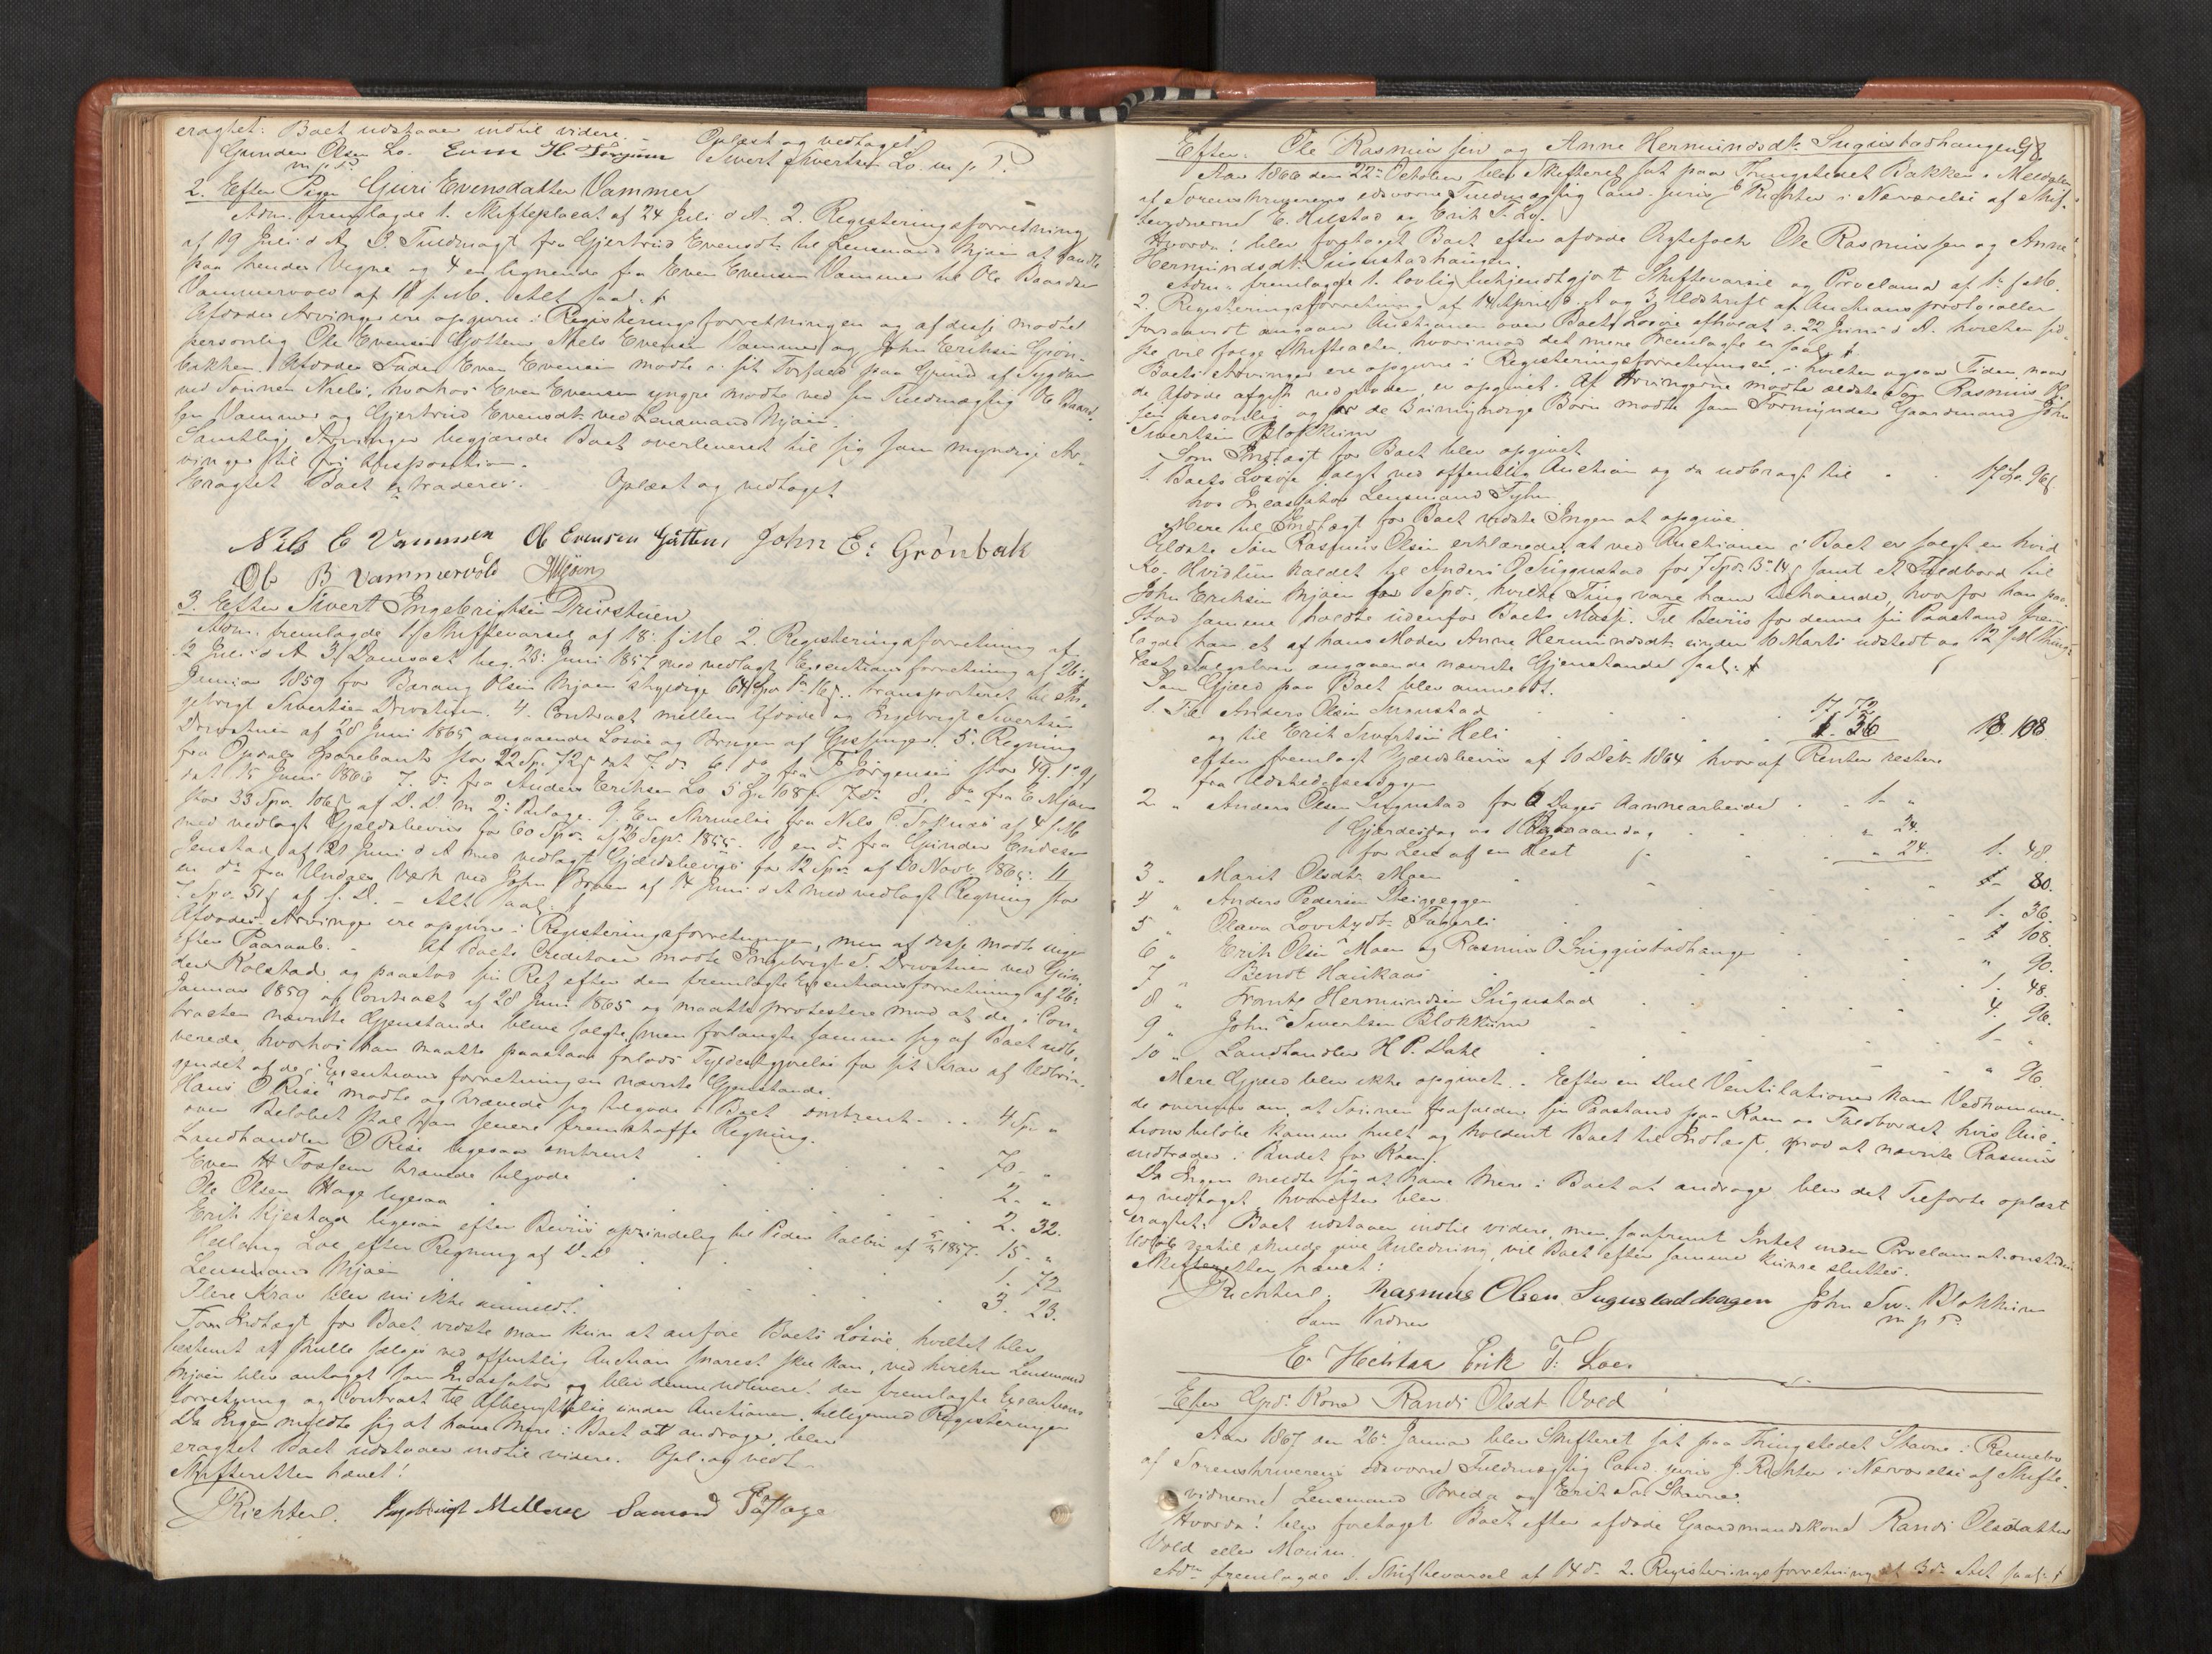 eragtet: Boet udstaaer indtil videre. – Oplæst og vedtaget
Gunder Olsen Lo. Even H. Vognill Sivert Sivertsen Lo. m. p. P.
m. p. P.
2. Efter Pigen Guri Evensdatter Vammer
Adm. fremlagde 1. Skifteplacat af 24 Juli d. A. 2. Registeringsforretning
af 19 Juli d. A. 3. Fuldmagt fra Gjertrud Evensdt. til Lensmand Mjøen at handle
paa hendes Vegne og 4 en lignende fra Even Evensen Vammer til Ole Baardsen
Vammervold af 18 f. M. Alt saal.
Afdødes Arvinger ere opgivne i Registeringsforretningen og af disse mødte
personlig Ole Evensen Gotten Niels Evensen Vammer og John Eriksen Grøn-
bakken. Afdødes Fader Even Evensen mødte i sit Forfald paa Grund af Sygdom
ved Sønnen Niels, hvorhos Even Evensen yngre mødte ved sin Fuldmægtig Ole Baard-
sen Vammer og Gjertrud Evensdt. ved Lensmand Mjøen.
Samtlige Arvinger begjærede Boet overleveret til sig som myndige Ar-
vinger til fri Disposition.
Eragtet Boet extraderes. Oplæst og vedtaget
Nils E Vammer Ole Evensen Gotten John E: Grönbak
Ole B Vammervold Mjøen
3. Efter Sivert Ingebrigtsen Drivstuen
Adm. fremlagde 1 Skiftevarsel af 18. f. M. 2. Registeringsforretning af
12 Juli d. A. 3 Domsact beg. 23. Juni 1857 med vedlagt Executionsforretning af 26.
Januar 1859 for Baraug Olsen Mjøen skyldige 64 Spd. 1 16 s. transporteret til In-
gebrigt Sivertsen Drivstuen. 4. Contract mellem Afdøde og Ingebrigt Sivertsen
Drivstuen af 28 Juni 1865 angaaende Løsøre og Brugen af Gjæstingen. 5. Regning
fra Opdals Sparebank stor 22 Sp. 72 s
dat. 15 Juni 1866 7. do. fra Anders Eriksen Lo 5 Sp. 108 s.
stor 33 Spd. 106 s af D. D. m. 2 Bilage. 9. En Skrivelse fra Nils
med vedlagt Gjældsbeviis for 60 Spd. af 26 Sept. 1855. 10 en do. fra Gunder Endresen
Jenstad af 21 Juni d. A. med vedlagt Gjældsbeviis for 12 Spd. af 20 Novbr. 1865. 11
en do. fra Undals Værk ved John Broen af 14 Juni d. A. med vedlagt Regning stor
7 Spd. 51 s af s. D. – Alt saal.
Afdødes Arvinger ere opgivne i Registeringsforretningen, men af disse mødte ingen
efter Paaraab. – Af Boets Creditorer mødte Ingebrigt S. Drivstuen ved Gun-
der Kolstad og paastod sin Ret efter den fremlagte Executionsforretning af 26.
Januar 1859 og Contract af 28 Juni 1865 og maatte protestere mod at de i Con-
tracten nævnte Gjenstande bleve solgte, men forlangte samme sig af Boet udle-
verede, hvorhos han maatte paastaae forlods Fyldestgjørelse for sit Krav af Udbrin-
gendet af de i Executionsforretningen nævnte Gjenstande.
Hans O Rise mødte og krævede sig tilgode i Boet omtrent . . . 4 Sp. „
over Beløbet skal han senere fremskaffe Regning.
Landhandler O Rise ligesaa omtrent . . . 70 – „
Even H Fossem krævede tilgode . . . 2 – „
Ole Olsen Hage ligesaa . . . 2. 32.
Erik Kjestad ligesaa efter Beviis oprindelig til Peder Aalbu af 5/5 1857. 15. „
Helling Loe efter Regning af D. D. . . . 1. 72
Lensmand Mjøen . . . 3. 23.
Flere Krav blev nu ikke anmeldt.
Som Indtægt for Boet vidste man kun at anføre Boets Løsøre, hvilket blev
bestemt at skulle sælges ved offentlig Auction snarest skee kan, ved hvilken Lensmand
Mjøen blev antaget som Incassator og blev denne udleveret den fremlagte Executions
forretning og Contract til Afbenyttelse under Auctionen, tilligemed Registeringen
Da Ingen meldte sig at have Mere i Boet at andrage, blev
eragtet Boet udstaaer indtil videre. Opl. og vedt.
Skifteretten hævet!
JRichter. Ingebrigt Mellem Samand
Efter. Ole Rasmussen og Anne Hermundsdt. Sugustadhaugen 98
Aar 1866 den 22de October blev Skifteret sat paa Thingstedet Bakken i Meldalen
af Sorenskriverens edsvorne Fuldmægtig Cand. juris J. Richter i Nærværelse af Skif-
tevidnerne E. Hilstad og Erik T. Lo.
Hvorda! blev foretaget Boet efter afdøde Ægtefolk Ole Rasmussen og Anne
Hermundsdt. Sugustadhaugen
Adm. fremlagde 1. lovlig bekjendtgjort Skiftevarsel og Proclama af 1. f. M.
2. Registeringsforretning af 14 April d. A. og 3 Udskrift af Auctionsprotocollen
forsaavidt angaaer Auctionen over Boets Løsøre afholdt d. 22 Juni d. A. hvilken sid-
ste vil følge Skifteacten, hvorimod det mere Fremlagte er saal.
Boets Arvinger ere opgivne i Registeringsforretningen, i hvilken ogsaa Tiden, naar
de Afdøde afgik ved Døden, er opgivet. Af Arvingerne mødte ældste Søn Rasmus Ol-
sen personlig og for de 3 umyndige Børn mødte som Formynder Gaardmand John
Sivertsen Blokkum
Som Indtægt for Boet blev opgivet
1. Boets Løsøre solgt ved offentlig Auction og da udbragt til . . 172. 96 s
hos Incassator Lensmand Syhn.
Mere til Indtægt for Boet vidste Ingen at opgive.
Ældste Søn Rasmus Olsen erklærede, at ved Auctionen i Boet er solgt en hvid
Ko. Hvidlin kaldet til Anders O Sugustad for 7 Spd. 3 14 s samt et Foldbord til
John Eriksen Mjøen for 1 Spd., hvilke Ting vare ham tilhørende, hvorfor han paa-
stod samme holdte udenfor Boets Masse. Til Beviis for denne sin Paastand frem-
lagde han et af hans Moder Anne Hermundsdt. under 10 Marts udstedt og 12 s. M. thing-
læst Salgsbrev angaaende nævnte Gjenstande saal.
Som Gjæld paa Boet blev anmeldt.
1. Til Anders Olsen Sugustad . . . 17. 72
og til Erik Sivertsen Heli . . . 1. 36 18. 108
efter fremlagt Gjældsbeviis af 10 Dcbr. 1864 hvoraf Renter restere
fra Udstedelsesdagen
2 „ Anders Olsen Sugustad for 6 Dages Aannearbeide . . 1 – „
1 Gjærdesdag og 1 . . . „ 24.
for Leie af en Hest . . . „ 24. 1. 48.
3 „ Marit Olsdt. Moen . . . 1 – 80.
4 „ Anders Pedersen Steigeggen . . . 1. 36.
5 „ Olava Lovisedt. Fagerli . . . 1 108.
6 „ Erik Olsen Moen og Rasmus O Sugustadhaugen . . . „ 90.
7 „ Bendt Haukaas . . . 1. 48.
8 „ Tronte Hermundsen Sugustad . . . 4. 96.
9 „ John Sivertsen Blokkum . . . 1 – „
10 „ Landhandler H P. Dahl . . . „ 96.
Mere Gjæld blev ikke opgivet. Efter en Deel Ventilationer kom Vedkommen-
de overeens om, at Sønnen frafalder sin Paastand paa Koen og Foldbordet hvis Auc-
tionsbeløb komme heelt og holdent Boet til Indtægt, mod at nævnte Rasmus
indtræder i Budet for Koen.
Da Ingen meldte sig at have Mere i Boet at andrage blev det Tilførte oplæst
og vedtaget, hvorefter blev
eragtet: Boet udstaaer indtil videre, men saafremt Intet inden Proclamationstidens
Udløb dertil skulde give Anledning, vil Boet efter samme kunne sluttes.
Skifteretten hævet!
JRichter. Rasmus Olsen Sugustadhagen John Siv. Blokkum
Som Vidner m. p. P.
E. Helstad Erik T: Loe.
Efter Gmd. Kone Randi Olsdt. Vold
Aar 1867 den 26. Januar blev Skifteret sat paa Thingstedet Stavne i Rennebo
af Sorenskriverens edsvorne Fuldmægtig Cand. juris J. Richter i Nærværelse af Skifte-
vidnerne Lensmand Breda og Erik Stavne.
Hvorda! blev foretaget Boet efter afdøde Gaardmandskone Randi Olsdatter
Vold eller Moum.
Adm. fremlagde 1. Skiftevarsel af 14 d. 2. Registeringsforretning af 3 d. Alt saal.